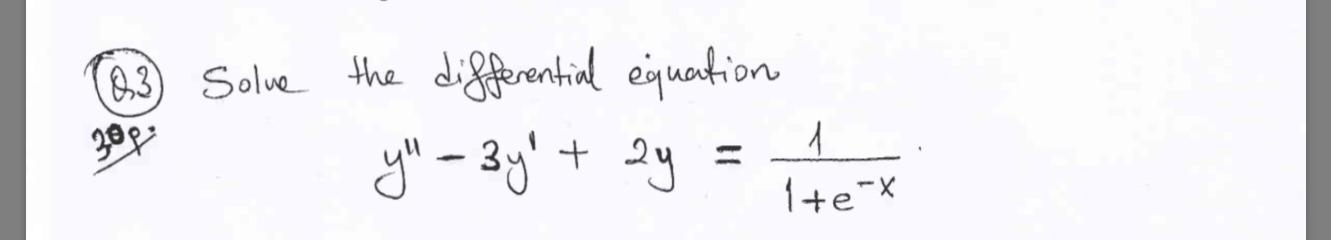 Q.3 Solve the differential equation
30p. y'' - 3y' + 2y = 1/(1+e^-x)